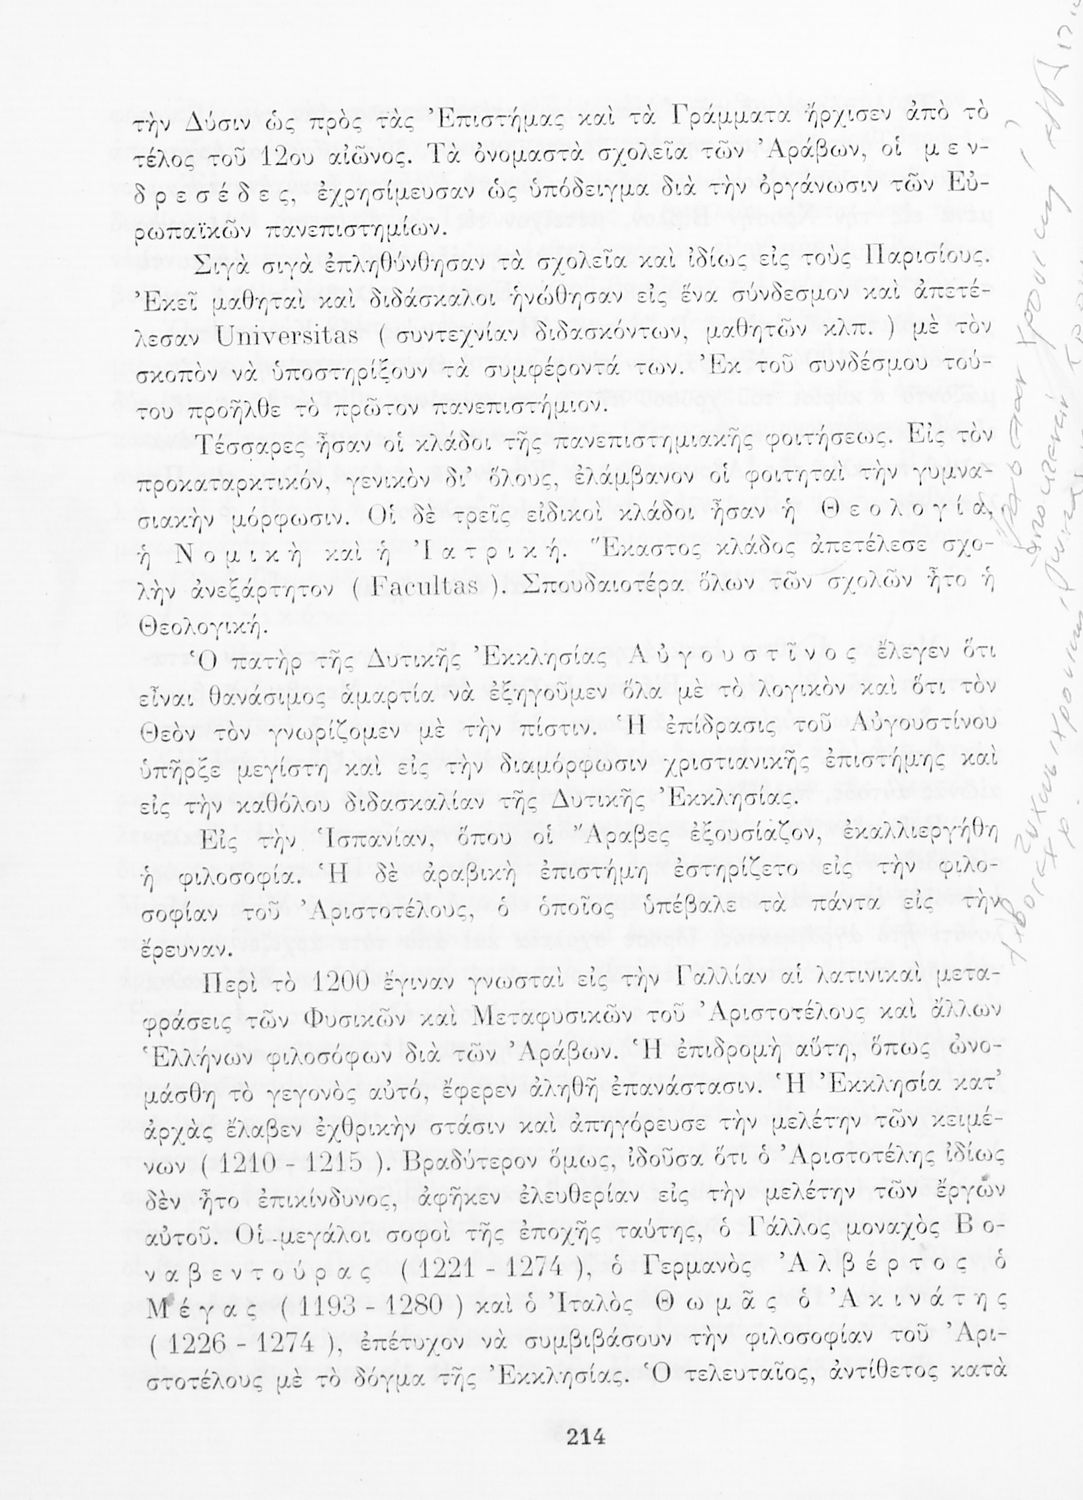 τὴν Δύσιν ὡς πρὸς τὰς Ἐπιστήμας καὶ τὰ Γράμματα ἤρχισεν ἀπὸ τὸ
τέλος τοῦ 12ου αἰῶνος. Τὰ ὀνομαστὰ σχολεῖα τῶν Ἀράβων, οἱ μεν-
δρεσέδες, ἐχρησίμευσαν ὡς ὑπόδειγμα διὰ τὴν ὀργάνωσιν τῶν Εὐ-
ρωπαϊκῶν πανεπιστημίων.
Σιγὰ σιγὰ ἐπληθύνθησαν τὰ σχολεῖα καὶ ἰδίως εἰς τοὺς Παρισίους.
Ἐκεῖ μαθηταὶ καὶ διδάσκαλοι ἡνώθησαν εἰς ἕνα σύνδεσμον καὶ ἀπετέ-
λεσαν Universitas ( συντεχνίαν διδασκόντων, μαθητῶν κλπ. ) μὲ τὸν
σκοπὸν νὰ ὑποστηρίξουν τὰ συμφέροντά των. Ἐκ τοῦ συνδέσμου τού-
του προῆλθε τὸ πρῶτον πανεπιστήμιον.
Τέσσαρες ἦσαν οἱ κλάδοι τῆς πανεπιστημιακῆς φοιτήσεως. Εἰς τὸν
προκαταρκτικόν, γενικὸν δι' ὅλους, ἐλάμβανον οἱ φοιτηταὶ τὴν γυμνα-
σιακὴν μόρφωσιν. Οἱ δὲ τρεῖς εἰδικοὶ κλάδοι ἦσαν ἡ Θεολογία,
ἡ Νομικὴ καὶ ἡ Ἰατρική. Ἕκαστος κλάδος ἀπετέλεσε σχο-
λὴν ἀνεξάρτητον ( Facultas ). Σπουδαιοτέρα ὅλων τῶν σχολῶν ἦτο ἡ
Θεολογική.
Ὁ πατὴρ τῆς Δυτικῆς Ἐκκλησίας Αὐγουστῖνος ἔλεγεν ὅτι
εἶναι θανάσιμος ἁμαρτία νὰ ἐξηγοῦμεν ὅλα μὲ τὸ λογικὸν καὶ ὅτι τὸν
Θεὸν τὸν γνωρίζομεν μὲ τὴν πίστιν. Ἡ ἐπίδρασις τοῦ Αὐγουστίνου
ὑπῆρξε μεγίστη καὶ εἰς τὴν διαμόρφωσιν χριστιανικῆς ἐπιστήμης καὶ
εἰς τὴν καθόλου διδασκαλίαν τῆς Δυτικῆς Ἐκκλησίας.
Εἰς τὴν Ἱσπανίαν, ὅπου οἱ Ἄραβες ἐξουσίαζον, ἐκαλλιεργήθη
ἡ φιλοσοφία. Ἡ δὲ ἀραβικὴ ἐπιστήμη ἐστηρίζετο εἰς τὴν φιλο-
σοφίαν τοῦ Ἀριστοτέλους, ὁ ὁποῖος ὑπέβαλε τὰ πάντα εἰς τὴν
ἔρευναν.
Περὶ τὸ 1200 ἔγιναν γνωσταὶ εἰς τὴν Γαλλίαν αἱ λατινικαὶ μετα-
φράσεις τῶν Φυσικῶν καὶ Μεταφυσικῶν τοῦ Ἀριστοτέλους καὶ ἄλλων
Ἑλλήνων φιλοσόφων διὰ τῶν Ἀράβων. Ἡ ἐπιδρομὴ αὕτη, ὅπως ὠνο-
μάσθη τὸ γεγονὸς αὐτό, ἔφερεν ἀληθῆ ἐπανάστασιν. Ἡ Ἐκκλησία κατ'
ἀρχὰς ἔλαβεν ἐχθρικὴν στάσιν καὶ ἀπηγόρευσε τὴν μελέτην τῶν κειμέ-
νων ( 1210 - 1215 ). Βραδύτερον ὅμως, ἰδοῦσα ὅτι ὁ Ἀριστοτέλης ἰδίως
δὲν ἦτο ἐπικίνδυνος, ἀφῆκεν ἐλευθερίαν εἰς τὴν μελέτην τῶν ἔργων
αὐτοῦ. Οἱ μεγάλοι σοφοὶ τῆς ἐποχῆς ταύτης, ὁ Γάλλος μοναχὸς Βο-
ναβεντούρας ( 1221 - 1274 ), ὁ Γερμανὸς Ἀλβέρτος ὁ
Μέγας ( 1193 - 1280 ) καὶ ὁ Ἰταλὸς Θωμᾶς ὁ Ἀκινάτης
( 1226 - 1274 ), ἐπέτυχον νὰ συμβιβάσουν τὴν φιλοσοφίαν τοῦ Ἀρι-
στοτέλους μὲ τὸ δόγμα τῆς Ἐκκλησίας. Ὁ τελευταῖος, ἀντίθετος κατὰ
214